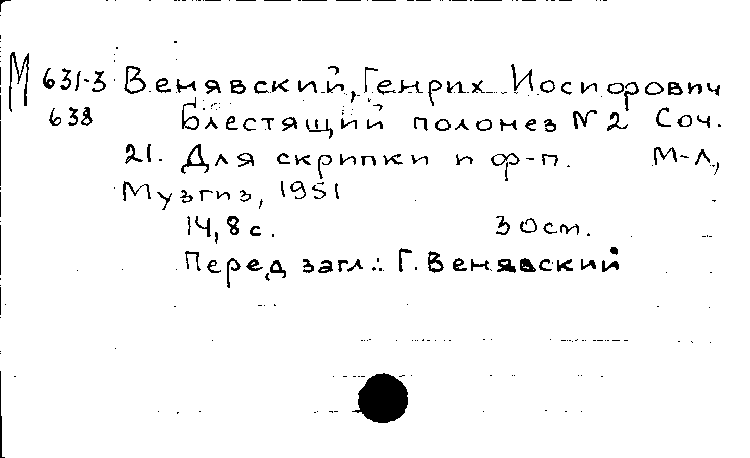 М 631-3 Венявский, Генрих Иосифович
638 Блестящий полонез № 2 Соч.
21. Для скрипки и ф-п. М-Л,
Музгиз, 1951
14,8 с. 30 см.
Перед загл.: Г. Венявский